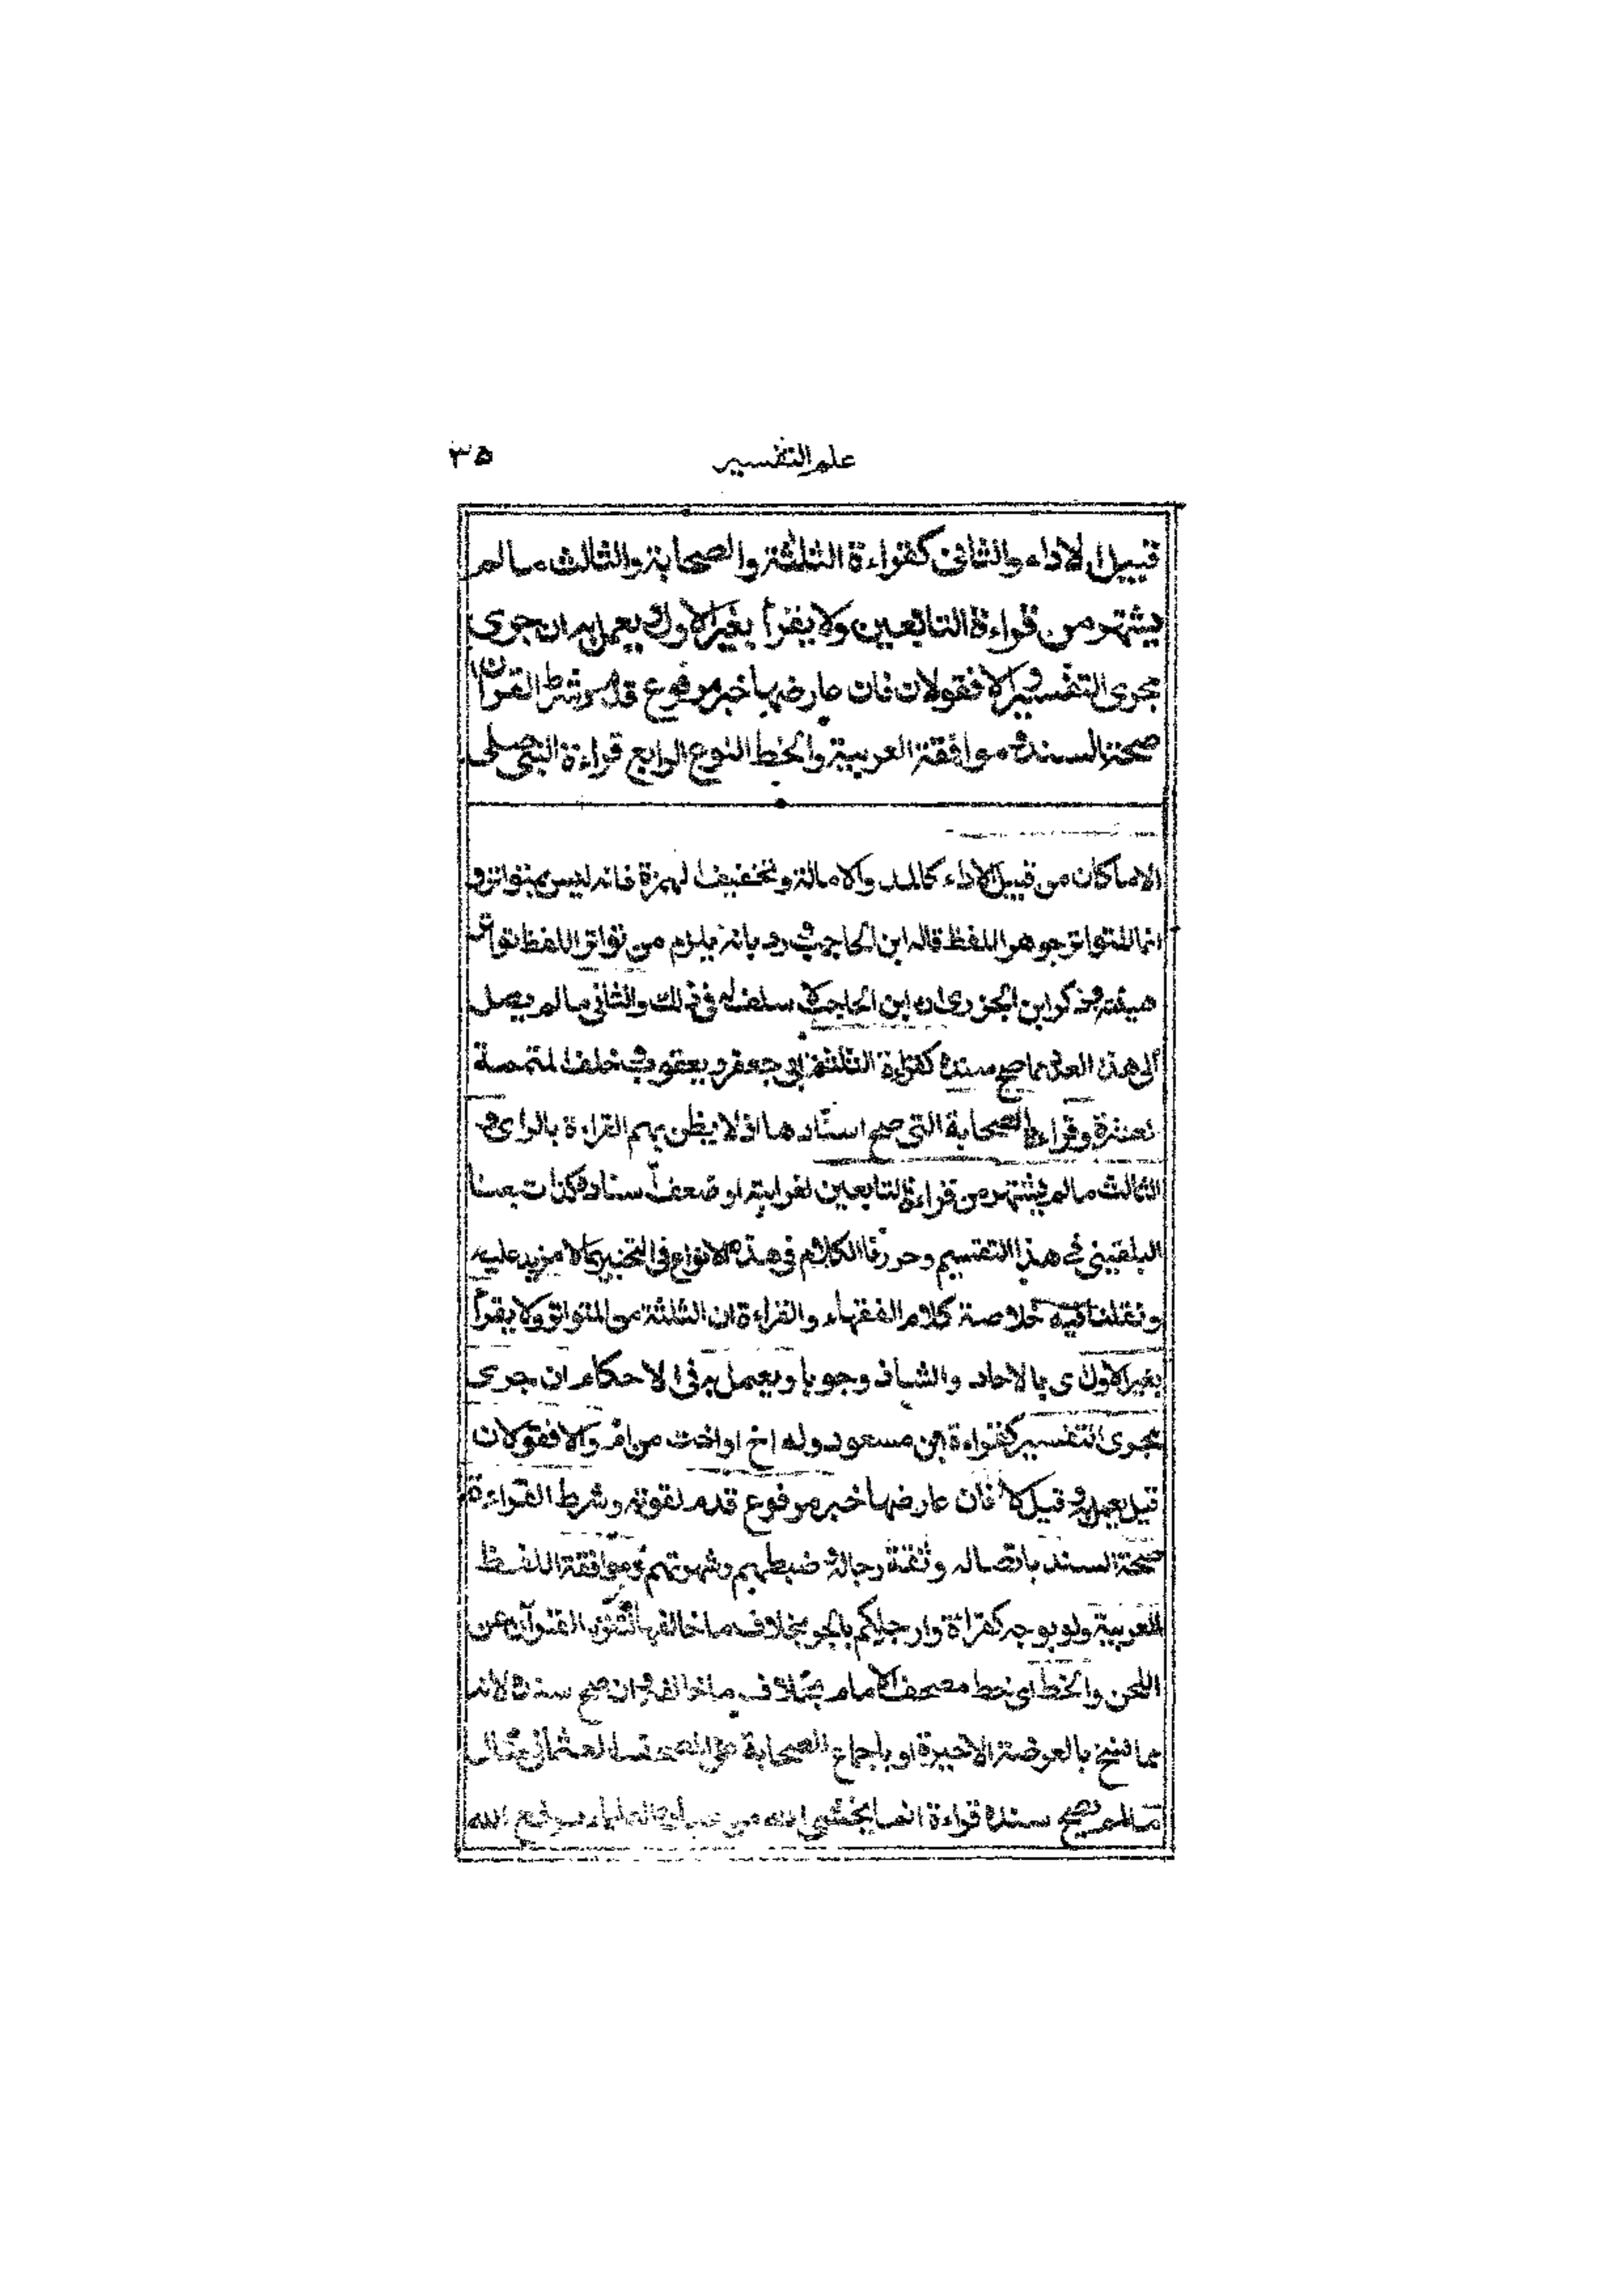 علم التفسير ٣٥
قبيل الاداء والثانى كقراءة الثلثة والصحابة والثالث ما لم
يشتهر من قراءة التابعين ولا يقرأ بغير الاول ويعمل به ان جرى
مجرى التفسير والا فقولان فان عارضها خبر مرفوع قدم وشرط القرآن
صحة السند وموافقة العربية والخط النوع الرابع قراءة النبي صلى
الا ما كان من قبيل الاداء كالمد والامالة وتخفيف الهمزة فانه ليس بمتواتر و
انما المتواتر جوهر اللفظ قاله ابن الحاجب ورد بانه يلزم من تواتر اللفظ تواتر
هيئته وذكر ابن الجزرى ان ابن الحاجب لا سلف له فى ذلك والثانى ما لم يصل
الى هذا العدد مما صح سنده كقراءة الثلثة ابى جعفر ويعقوب وخلف المتممة
لعشرة وقراءة الصحابة التى صح اسنادها اذ لا يظن بهم القراءة بالراى و
الثالث ما لم يشتهر من قراءة التابعين لغرابته او ضعف اسناده كذا تبعنا
البلقينى فى هذا التقسيم وحررنا الكلام فى هذه الانواع فى التحبير بما لا مزيد عليه
ونقلنا فيه خلاصة كلام الفقهاء والقراءة ان الثلثة من المتواتر ولا يقرأ
بغير الاول اى بالاحاد والشاذ وجوبا ويعمل به فى الاحكام ان جرى
مجرى التفسير كقراءة ابن مسعود وله اخ او اخت من ام والا فقولان
قيل يعمل به وقيل لا فان عارضها خبر مرفوع قدم لقوته وشرط القراءة
صحة السند باتصاله وثقة رجاله وضبطهم وشهرتهم وموافقة اللفظ
العربية ولو بوجه كقراءة وارجلكم بالجر بخلاف ما خالفها القرآن عن
اللحن والخط اى خط مصحف الامام بخلاف ما خالفه وان صح سنده لانه
مما نسخ بالعرضة الاخيرة او باجماع الصحابة على المصحف العثمانى مثال
ما لم يصح سنده قراءة انما يخشى الله من عباده العلماء برفع الله